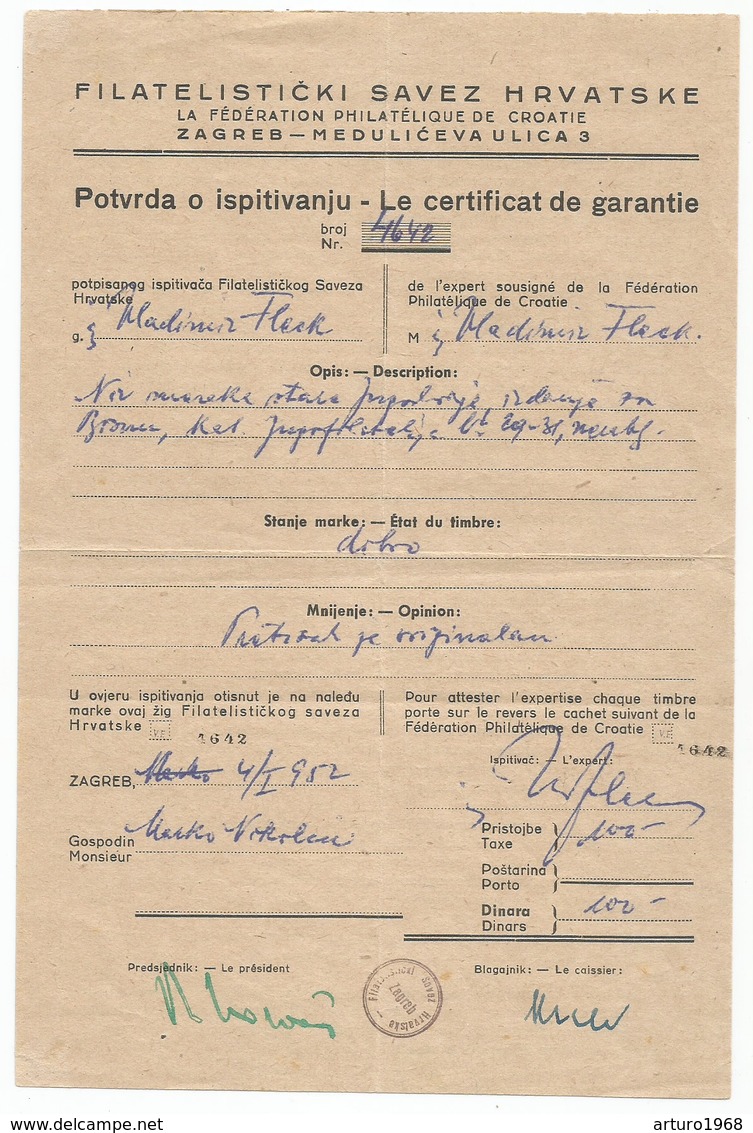 FILATELISTIČKI SAVEZ HRVATSKE
LA FÉDÉRATION PHILATÉLIQUE DE CROATIE
ZAGREB — MEDULIĆEVA ULICA 3
Potvrda o ispitivanju - Le certificat de garantie
broj
Nr. 4642
potpisanog ispitivača Filatelističkog Saveza
Hrvatske
g. Vladimir Fleck
de l'expert sousigné de la Fédération
Philatélique de Croatie
M Vladimir Fleck.
Opis: — Description:
stara izdanje za
Bosnu, Kat. 29-31,
Stanje marke: — État du timbre:
dobro
Mnijenje: — Opinion:
je originalan
U ovjeru ispitivanja otisnut je na naleđu
marke ovaj žig Filatelističkog saveza
Hrvatske V.F.
1642
Pour attester l'expertise chaque timbre
porte sur le revers le cachet suivant de la
Fédération Philatélique de Croatie V.F.
1642
ZAGREB, Marko 4/I 952
Ispitivač: — L'expert:
Gospodin Marko
Monsieur
Pristojbe
Taxe 100-
Poštarina
Porto
Dinara
Dinars 100-
Predsjednik: — Le président
Filatelistički Savez Hrvatske —
Zagreb
Blagajnik: — Le caissier:
arturo1968